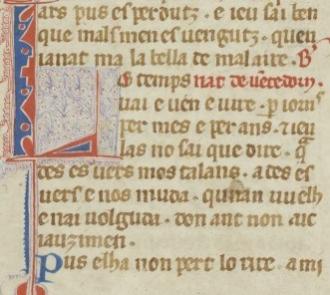 ars pus es perdutz · e ieu sai ben
que mal sinen es uengutz · quen
ianat ma la bella de mal aire · B'
L O temps nat de uētedorn
uai e uen e uire · p iorns
per mes e per ans · e ieu
las no sai que dire · q̄
des es uers mos talans · a des es
uers e nos muda · qunan uuelh
e nai uolguda · don anc non aic
iauzimen ·
Pus elha non pert lo rire · a mi